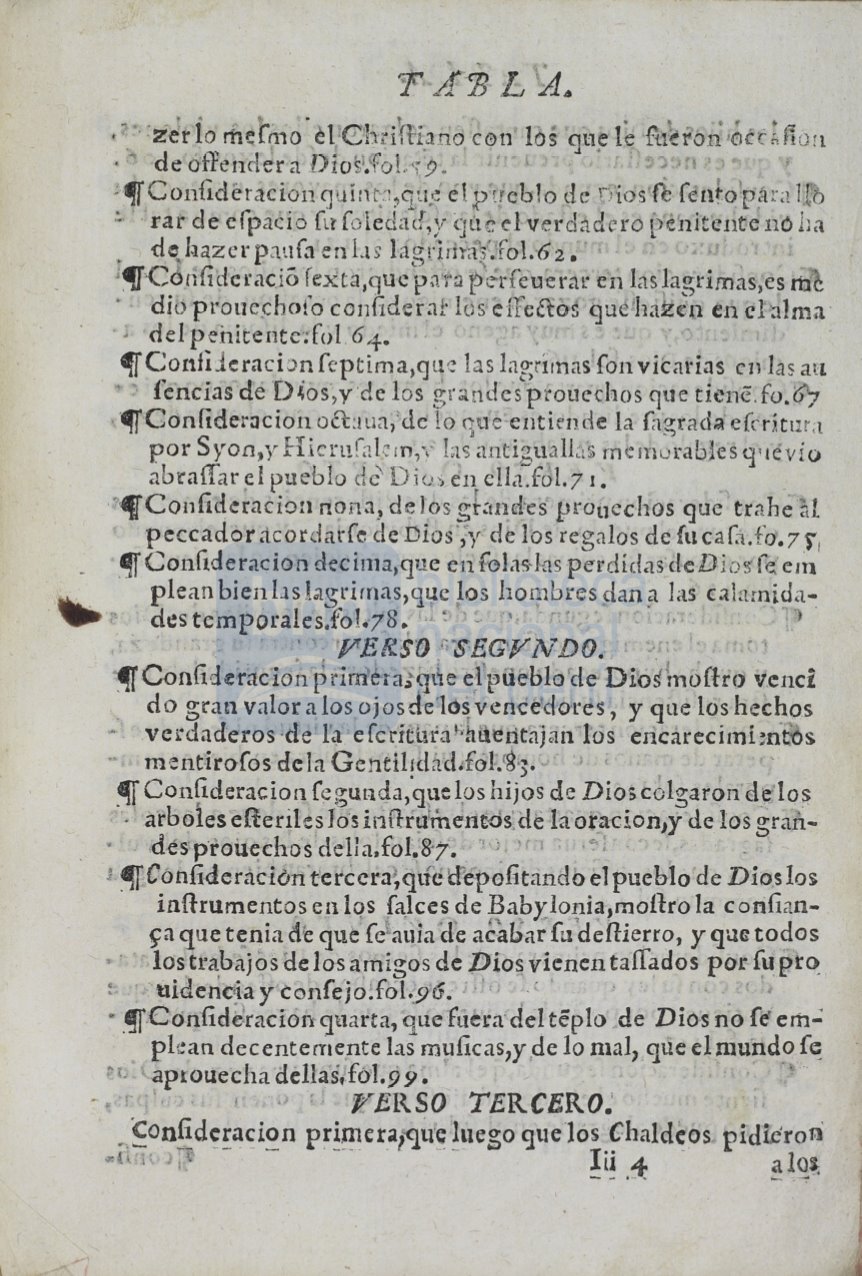 TABLA.
zer lo mesmo el Christiano con los que le fueron occasion
de offender a Dios. fol. 59.
¶ Consideracion quinta, que el pueblo de Dios se sento para llo
rar de espacio su soledad, y que el verdadero penitente no ha
de hazer pausa en las lagrimas. fol. 62.
¶ Consideraciõ sexta, que para perseuerar en las lagrimas, es me
dio prouechoso considerar los effectos que hazen en el alma
del penitente. fol 64.
¶ Consideracion septima, que las lagrimas son vicarias en las au
sencias de Dios, y de los grandes prouechos que tienẽ. fo. 67
¶ Consideracion octaua, de lo que entiende la sagrada escritura
por Syon, y Hierusalem, y las antiguallas memorables que vio
abrassar el pueblo de Dios en ella. fol. 71.
¶ Consideracion nona, de los grandes prouechos que trahe al
peccador acordarse de Dios, y de los regalos de su casa. fo. 75,
¶ Consideracion decima, que en solas las perdidas de Dios se em
plean bien las lagrimas, que los hombres dan a las calamida-
des temporales. fol. 78.
VERSO SEGVNDO.
¶ Consideracion primera, que el pueblo de Dios mostro venci
do gran valor a los ojos de los vencedores, y que los hechos
verdaderos de la escritura auentajan los encarecimientos
mentirosos de la Gentilidad. fol. 83.
¶ Consideracion segunda, que los hijos de Dios colgaron de los
arboles esteriles los instrumentos de la oracion, y de los gran-
des prouechos della. fol. 87.
¶ Consideracion tercera, que depositando el pueblo de Dios los
instrumentos en los salces de Babylonia, mostro la confian-
ça que tenia de que se auia de acabar su destierro, y que todos
los trabajos de los amigos de Dios vienen tassados por su pro
uidencia y consejo. fol. 96.
¶ Consideracion quarta, que fuera del tẽplo de Dios no se em-
plean decentemente las musicas, y de lo mal, que el mundo se
aprouecha dellas, fol. 99.
VERSO TERCERO.
Consideracion primera, que luego que los Chaldeos pidieron
Iii 4 a los